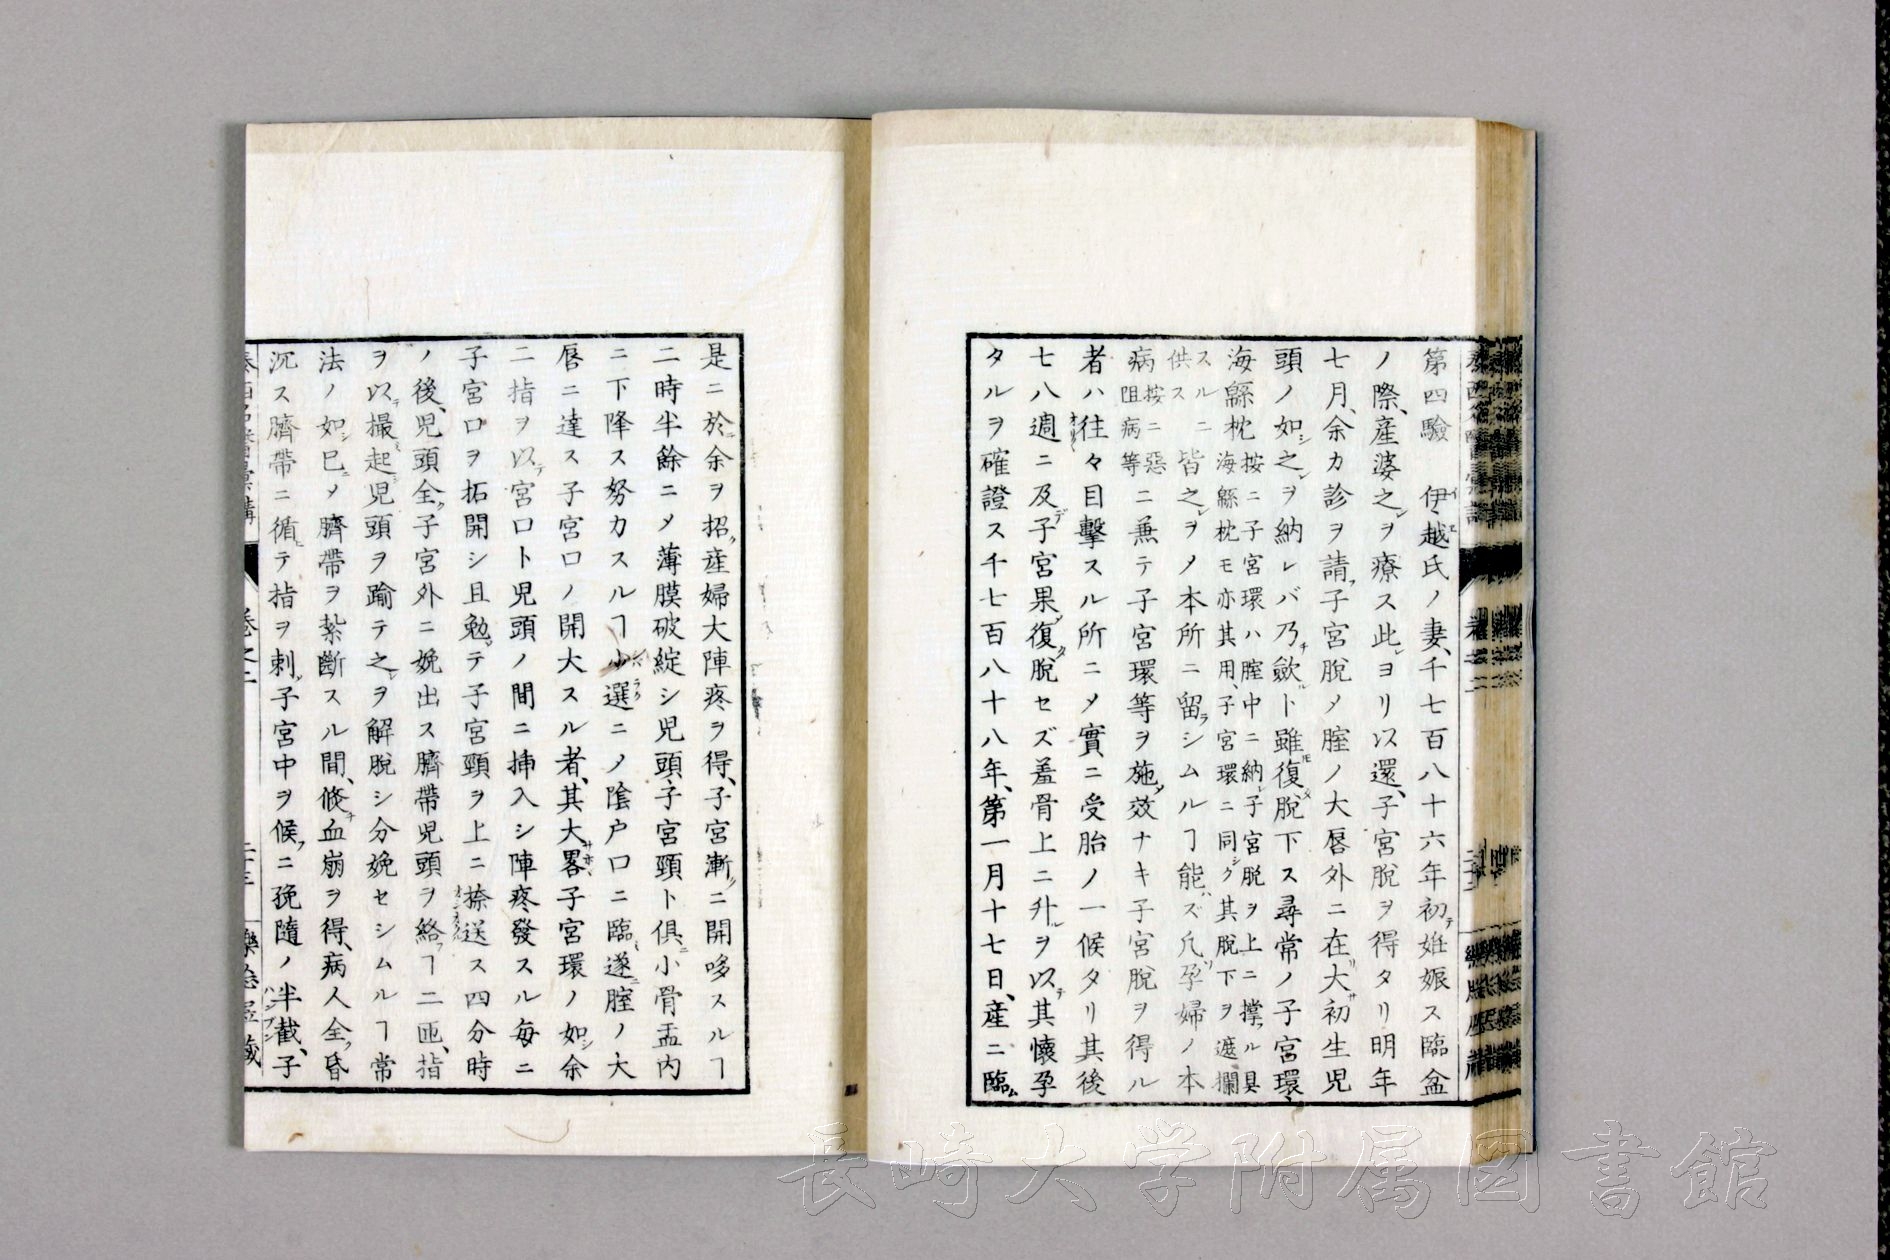 第四驗 伊越氏ノ妻、千七百八十六年初テ姙娠ス臨盆
ノ際、産婆之ヲ療ス此ヨリ以還、子宮脫ヲ得タリ明年
七月、余カ診ヲ請フ子宮脫ノ腟ノ大唇外ニ在リ大サ初生児
頭ノ如シ之レヲ納レバ乃チ歛ルト雖モ復タ脫下ス尋常ノ子宮環、
海緜枕
按ニ子宮環ハ腟中ニ納レ子宮脫ヲ上ニ撑フル具
海緜枕モ亦其用、子宮環ニ同シク其脫下ヲ遮攔
スルニ
供ス
皆之レヲメ本所ニ留ラシムルヿ能ハズ凡ソ孕婦ノ本
病
按ニ惡
阻病等
ニ兼テ子宮環等ヲ施メ效ナキ子宮脫ヲ得ル
者ハ往々目擊スル所ニメ實ニ受胎ノ一候タリ其後
七八週ニ及デ子宮果メ復タ脫セズ羞骨上ニ升ルヲ以テ其懷孕
タルヲ確證ス千七百八十八年、第一月十七日、産ニ臨ム
是ニ於テ余ヲ招ク産婦大陣疼ヲ得、子宮漸クニ開哆スルヿ
二時半餘ニメ薄膜破綻シ児頭、子宮頸ト俱ニ小骨盂内
ニ下降ス努力スルヿ少選ニメ陰戸口ニ臨ミ遂ニ腟ノ大
唇ニ達ス子宮口ノ開大スル者、其大サ畧ホ子宮環ノ如シ余
二指ヲ以テ宮口ト児頭ノ間ニ揷入シ陣疼發スル毎ニ
子宮口ヲ拓開シ且勉メテ子宮頸ヲ上ニ捺送ス四分時
ノ後、児頭全ク子宮外ニ娩出ス臍帶児頭ヲ絡フヿ二匝、指
ヲ以テ撮ミ起シ児頭ヲ踰テ之レヲ解脫シ分娩セシムルヿ常
法ノ如シ已ニメ臍帶ヲ紮斷スル間、倐チ血崩ヲ得、病人全ク昏
沉ス臍帶ニ循ヒテ指ヲ刺シ子宮中ヲ候フニ娩隨ノ半截、子
長崎大学附属図書館